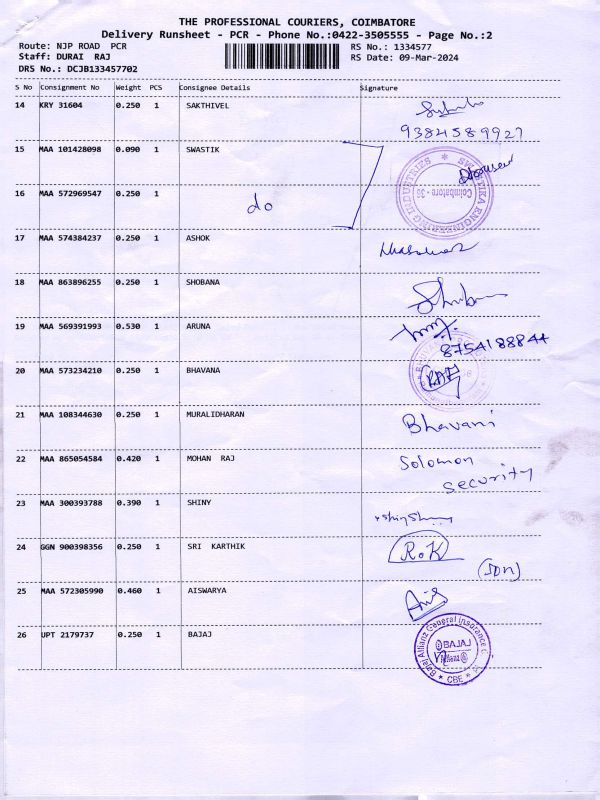 THE PROFESSIONAL COURIERS, COIMBATORE
Delivery Runsheet - PCR - Phone No.:0422-3505555 - Page No.:2
Route: NJP ROAD PCR
RS No.: 1334577
Staff: DURAI RAJ
RS Date: 09-Mar-2024
DRS No.: DCJB133457702
S No Consignment No Weight PCS Consignee Details Signature
14 KRY 31604 0.250 1 SAKTHIVEL
9384589927
15 MAA 101428098 0.090 1 SWASTIK
SWASTIKA ENGINEERING INDUSTRIES
Coimbatore - 38
16 MAA 572969547 0.250 1 do
17 MAA 574384237 0.250 1 ASHOK
18 MAA 863896255 0.250 1 SHOBANA
19 MAA 569391993 0.530 1 ARUNA
8754188844
20 MAA 573234210 0.250 1 BHAVANA
21 MAA 108344630 0.250 1 MURALIDHARAN
Bhavani
22 MAA 865054584 0.420 1 MOHAN RAJ
Solomon
security
23 MAA 300393788 0.390 1 SHINY
24 GGN 900398356 0.250 1 SRI KARTHIK
R.K
(SON)
25 MAA 572305990 0.460 1 AISWARYA
26 UPT 2179737 0.250 1 BAJAJ
Bajaj Allianz General Insurance
BAJAJ
Allianz
CBE